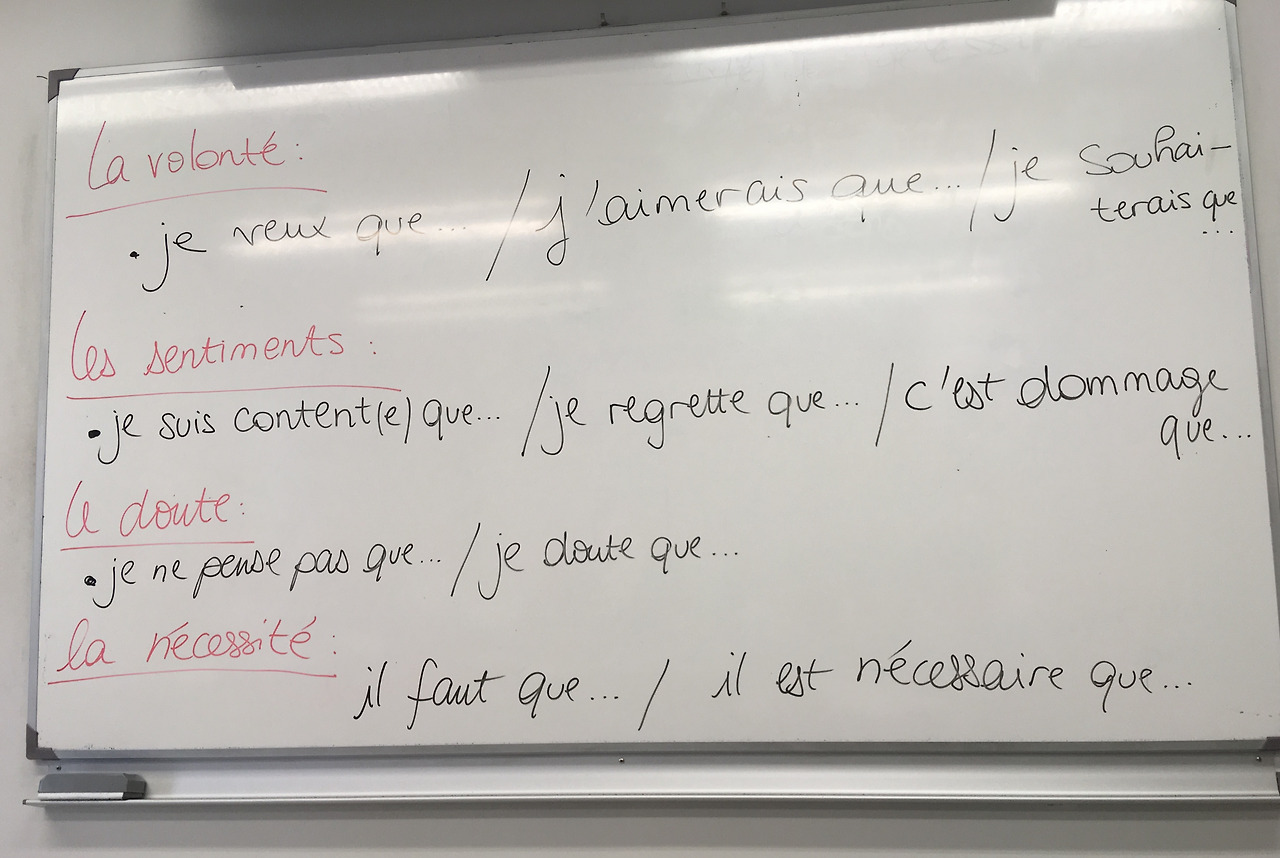 La volonté :
• je veux que... / j'aimerais que... / je souhai-
terais que
...
Les sentiments :
• je suis content(e) que... / je regrette que... / c'est dommage
que...
Le doute :
• je ne pense pas que... / je doute que...
la nécessité :
il faut que... / il est nécessaire que...